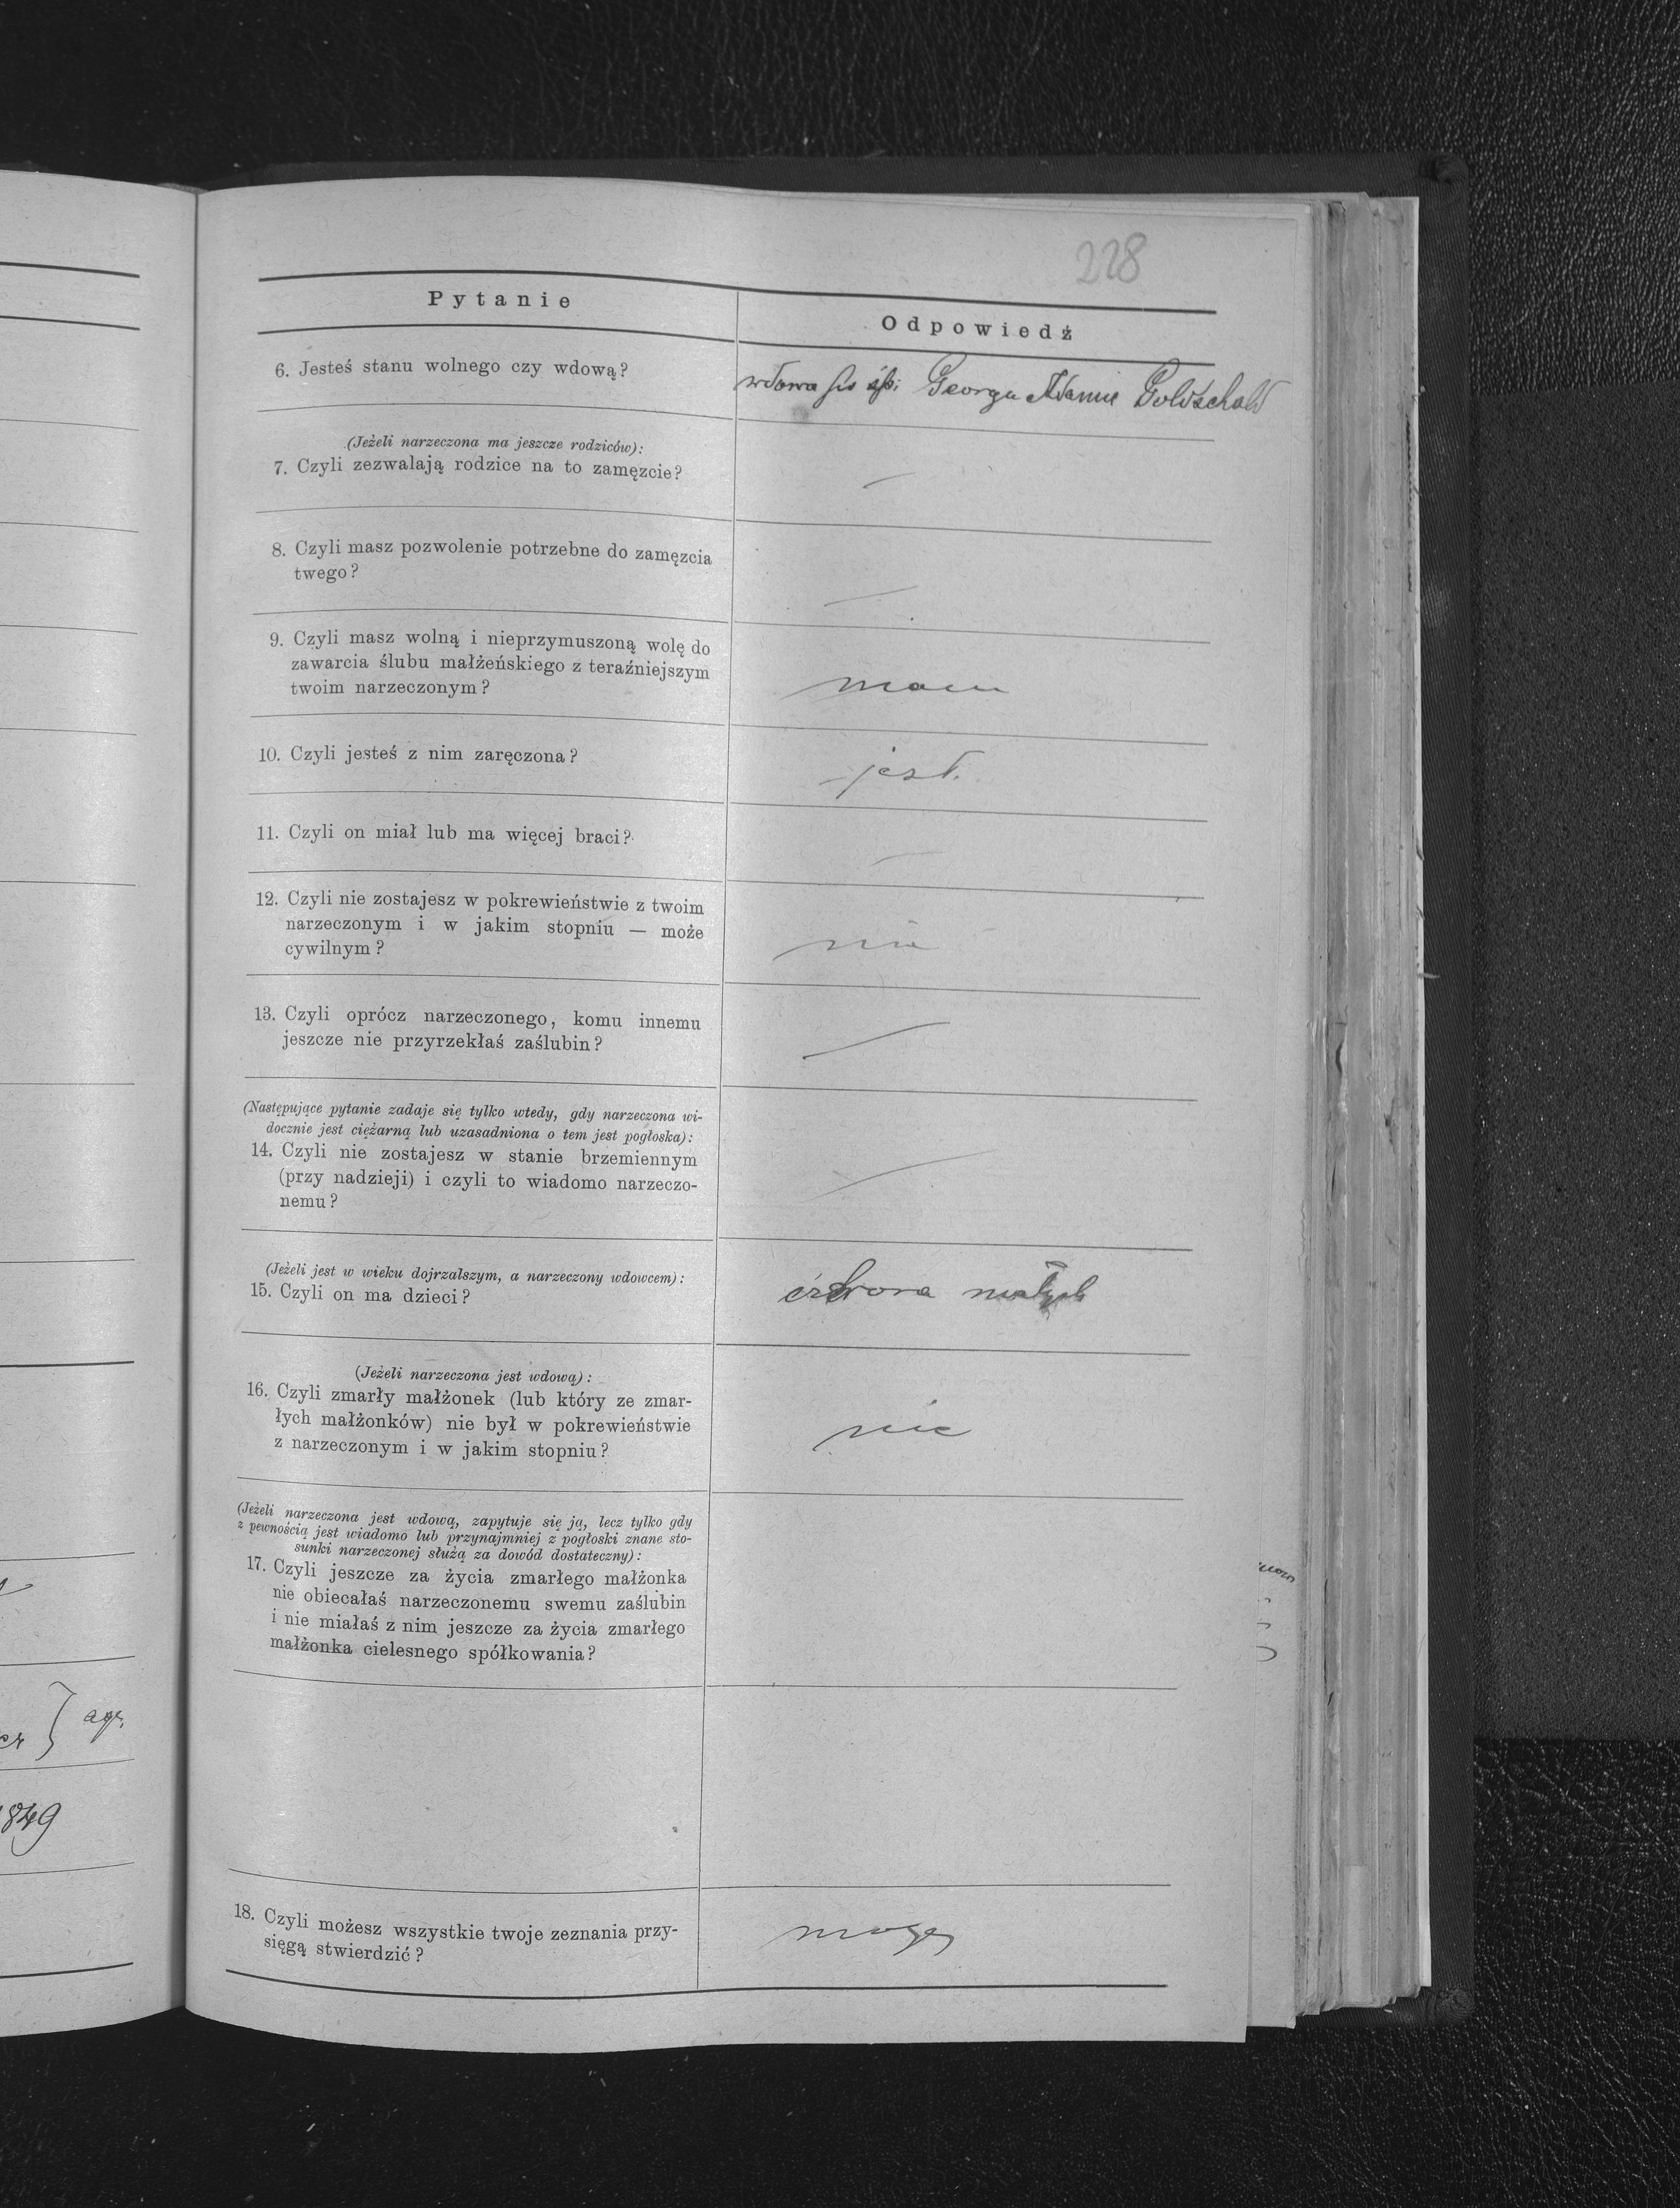 228
Pytanie
Odpowiedź
6. Jesteś stanu wolnego czy wdową?
wdowa po śp. Georgu Adamie
(Jeżeli narzeczona ma jeszcze rodziców):
7. Czyli zezwalają rodzice na to zamęzcie?
—
8. Czyli masz pozwolenie potrzebne do zamęzcia
twego?
—
9. Czyli masz wolną i nieprzymuszoną wolę do
zawarcia ślubu małżeńskiego z teraźniejszym
twoim narzeczonym?
mam
10. Czyli jesteś z nim zaręczona?
jest.
11. Czyli on miał lub ma więcej braci?
—
12. Czyli nie zostajesz w pokrewieństwie z twoim
narzeczonym i w jakim stopniu — może
cywilnym?
nie
13. Czyli oprócz narzeczonego, komu innemu
jeszcze nie przyrzekłaś zaślubin?
—
(Następujące pytanie zadaje się tylko wtedy, gdy narzeczona wi-
docznie jest ciężarną lub uzasadniona o tem jest pogłoska):
14. Czyli nie zostajesz w stanie brzemiennym
(przy nadzieji) i czyli to wiadomo narzeczo-
nemu?
—
(Jeżeli jest w wieku dojrzalszym, a narzeczony wdowcem):
15. Czyli on ma dzieci?
małych
(Jeżeli narzeczona jest wdową):
16. Czyli zmarły małżonek (lub który ze zmar-
łych małżonków) nie był w pokrewieństwie
z narzeczonym i w jakim stopniu?
nie
(Jeżeli narzeczona jest wdową, zapytuje się ją, lecz tylko gdy
z pewnością jest wiadomo lub przynajmniej z pogłoski znane sto-
sunki narzeczonej służą za dowód dostateczny):
17. Czyli jeszcze za życia zmarłego małżonka
nie obiecałaś narzeczonemu swemu zaślubin
i nie miałaś z nim jeszcze za życia zmarłego
małżonka cielesnego spółkowania?
agr.
849
18. Czyli możesz wszystkie twoje zeznania przy-
sięgą stwierdzić?
mogę